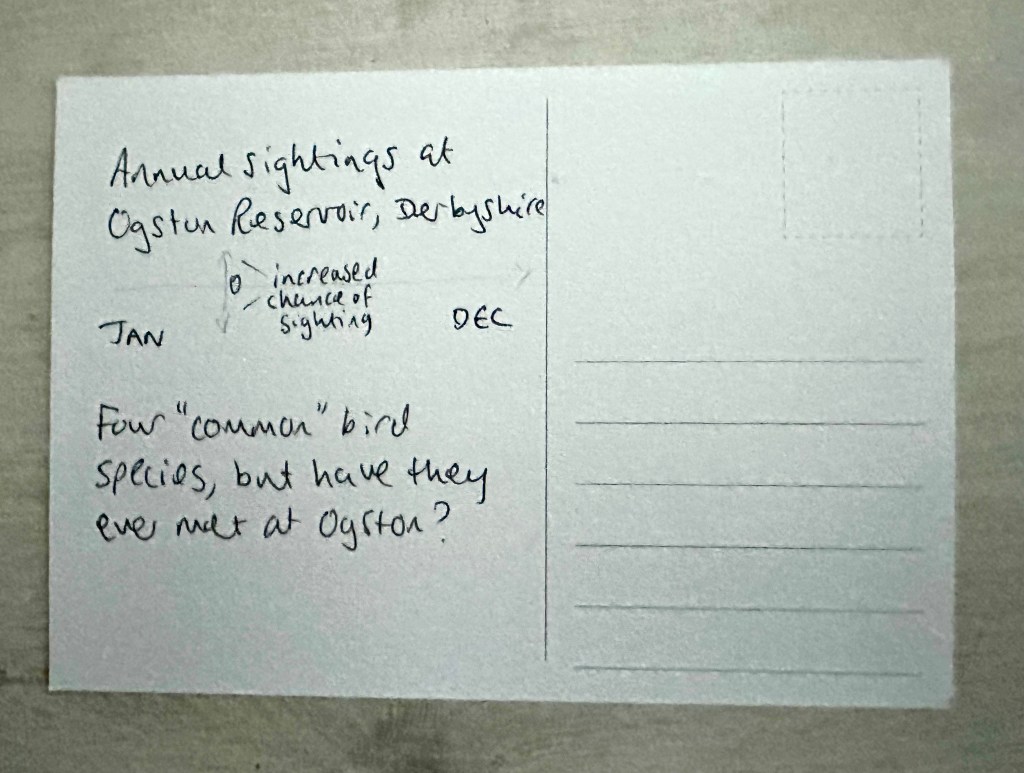 Annual sightings at
Ogston Reservoir, Derbyshire
increased
chance of
sighting
JAN
DEC
Four "common" bird
species, but have they
ever met at Ogston?